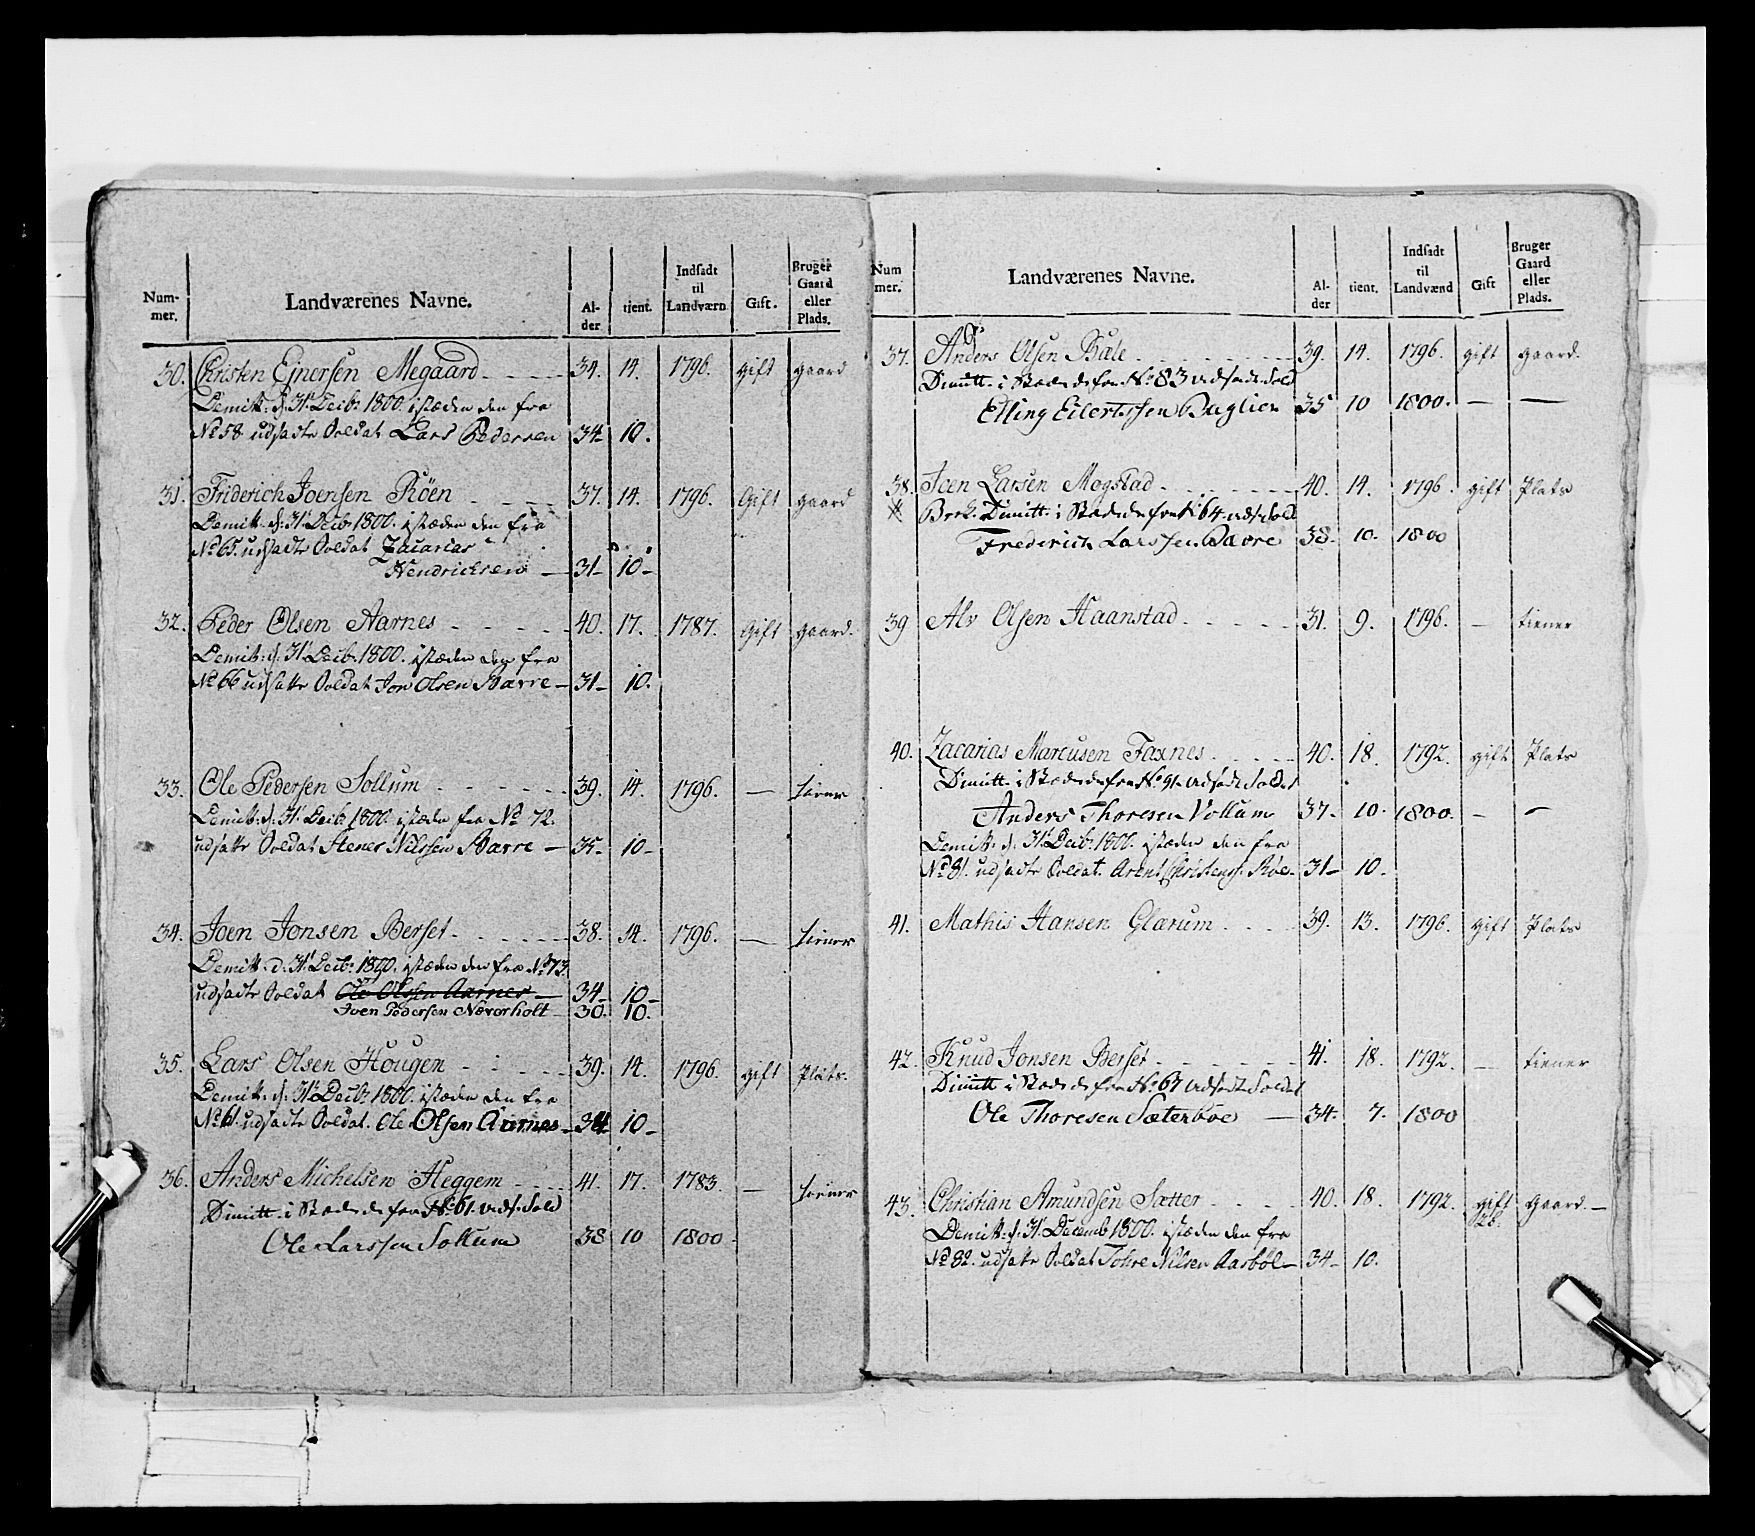 Num-mer. Landværenes Navne. Al-der tient. Indsadt til Landværn Gift. Bruger Gaard eller Plads.
30. Christen Ejnersen Megaard 34. 14. 1796. gift gaard
Demitt: d: 31t Decbr 1800. istæden den fra
No 58 udsadte Soldat Lars Pedersen 34- 10.
31. Friderich Joensen Röen 37. 14. 1796. Gift gaard
Demitt: d: 31t Decbr 1800. istæden den fra
No 65 udsadte Soldat Zacarias
Hendricksen 31- 10-
32. Peder Olsen Aarnes 40. 17. 1787. Gift gaard.
Demit: d: 31t Decbr 1800. istæden den fra
No 66 udsatte Soldat Jon Olsen Bævre 31- 10.
33. Ole Pedersen Sollum 39. 14. 1796. — tiener
Demitt: d: 31t Decbr 1800. istæden fra No 72.
udsatte Soldat Stener Nilssen Bævre 35- 10-
34. Joen Jonsen Berset 38. 14. 1796. — tiener
Demitt: d: 31t Decbr 1800. istæden den fra No 73.
udsadte Soldat Ole Olsen Aarnes 34- 10-
Joen Pedersen Næverholt 30. 10.
35. Lars Olsen Hougen 39. 14. 1796. gift Plats.
Demitt: d: 31t Decbr 1800. istæden den fra
No 61. udsadte Soldat. Ole Olsen Aarnes 34- 10-
36. Anders Michelsen Heggem 41. 17. 1783. — tiener
Dimitt. i Stæde de fra No 61. uds. Sold
Ole Larssen Sollum 38 10 1800.
Num mer. Landværenes Navne. Al-der tient. Indsadt til Landværnd Gift Bruger Gaard eller Plads.
37. Anders Olsen Bäle 39. 14. 1796. gift gaard.
Dimitt. i Stæde de fra No 83 udsadte Sold
Elling Eilertssen Buglien 35 10 1800. — —
38. Joen Larsen Mogstad 40. 14. 1796. gift Plats
Brek. Dimitt. i Stæde de fra No 64 udste Sold
Frederich Larssen Bævre 38. 10. 1800
39 Alv Olsen Haanstad 31. 9. 1796. — tiener
40. Zacarias Marcusen Faxnes 40. 18. 1792. gift Plats
Dimitt. i Stæde de fra No 91. udsadte Soldat
Anders Thoresen Vollum 37- 10. 1800. — —
Demitt: d: 31t Decbr 1800. istæden den fra
No 81. udsadte Soldat. Arent Christens: Röe 31- 10.
41. Mathis Hansen Glærum 39. 13. 1796. gift Plats
42. Knud Jonsen Berset 41. 18. 1792. — tiener
Dimitt i Stæde de fra No 67 udsadte Soldat
Ole Thoresen Sæterböe 34. 7. 1800
43. Christian Amundsen Sætter 40. 18. 1792. gift gaard. —
Demitt: d: 31t Decemb 1800. istæden den fra
No 82. udsatte Soldat Tohre Nilsen Aasböl 34- 10.